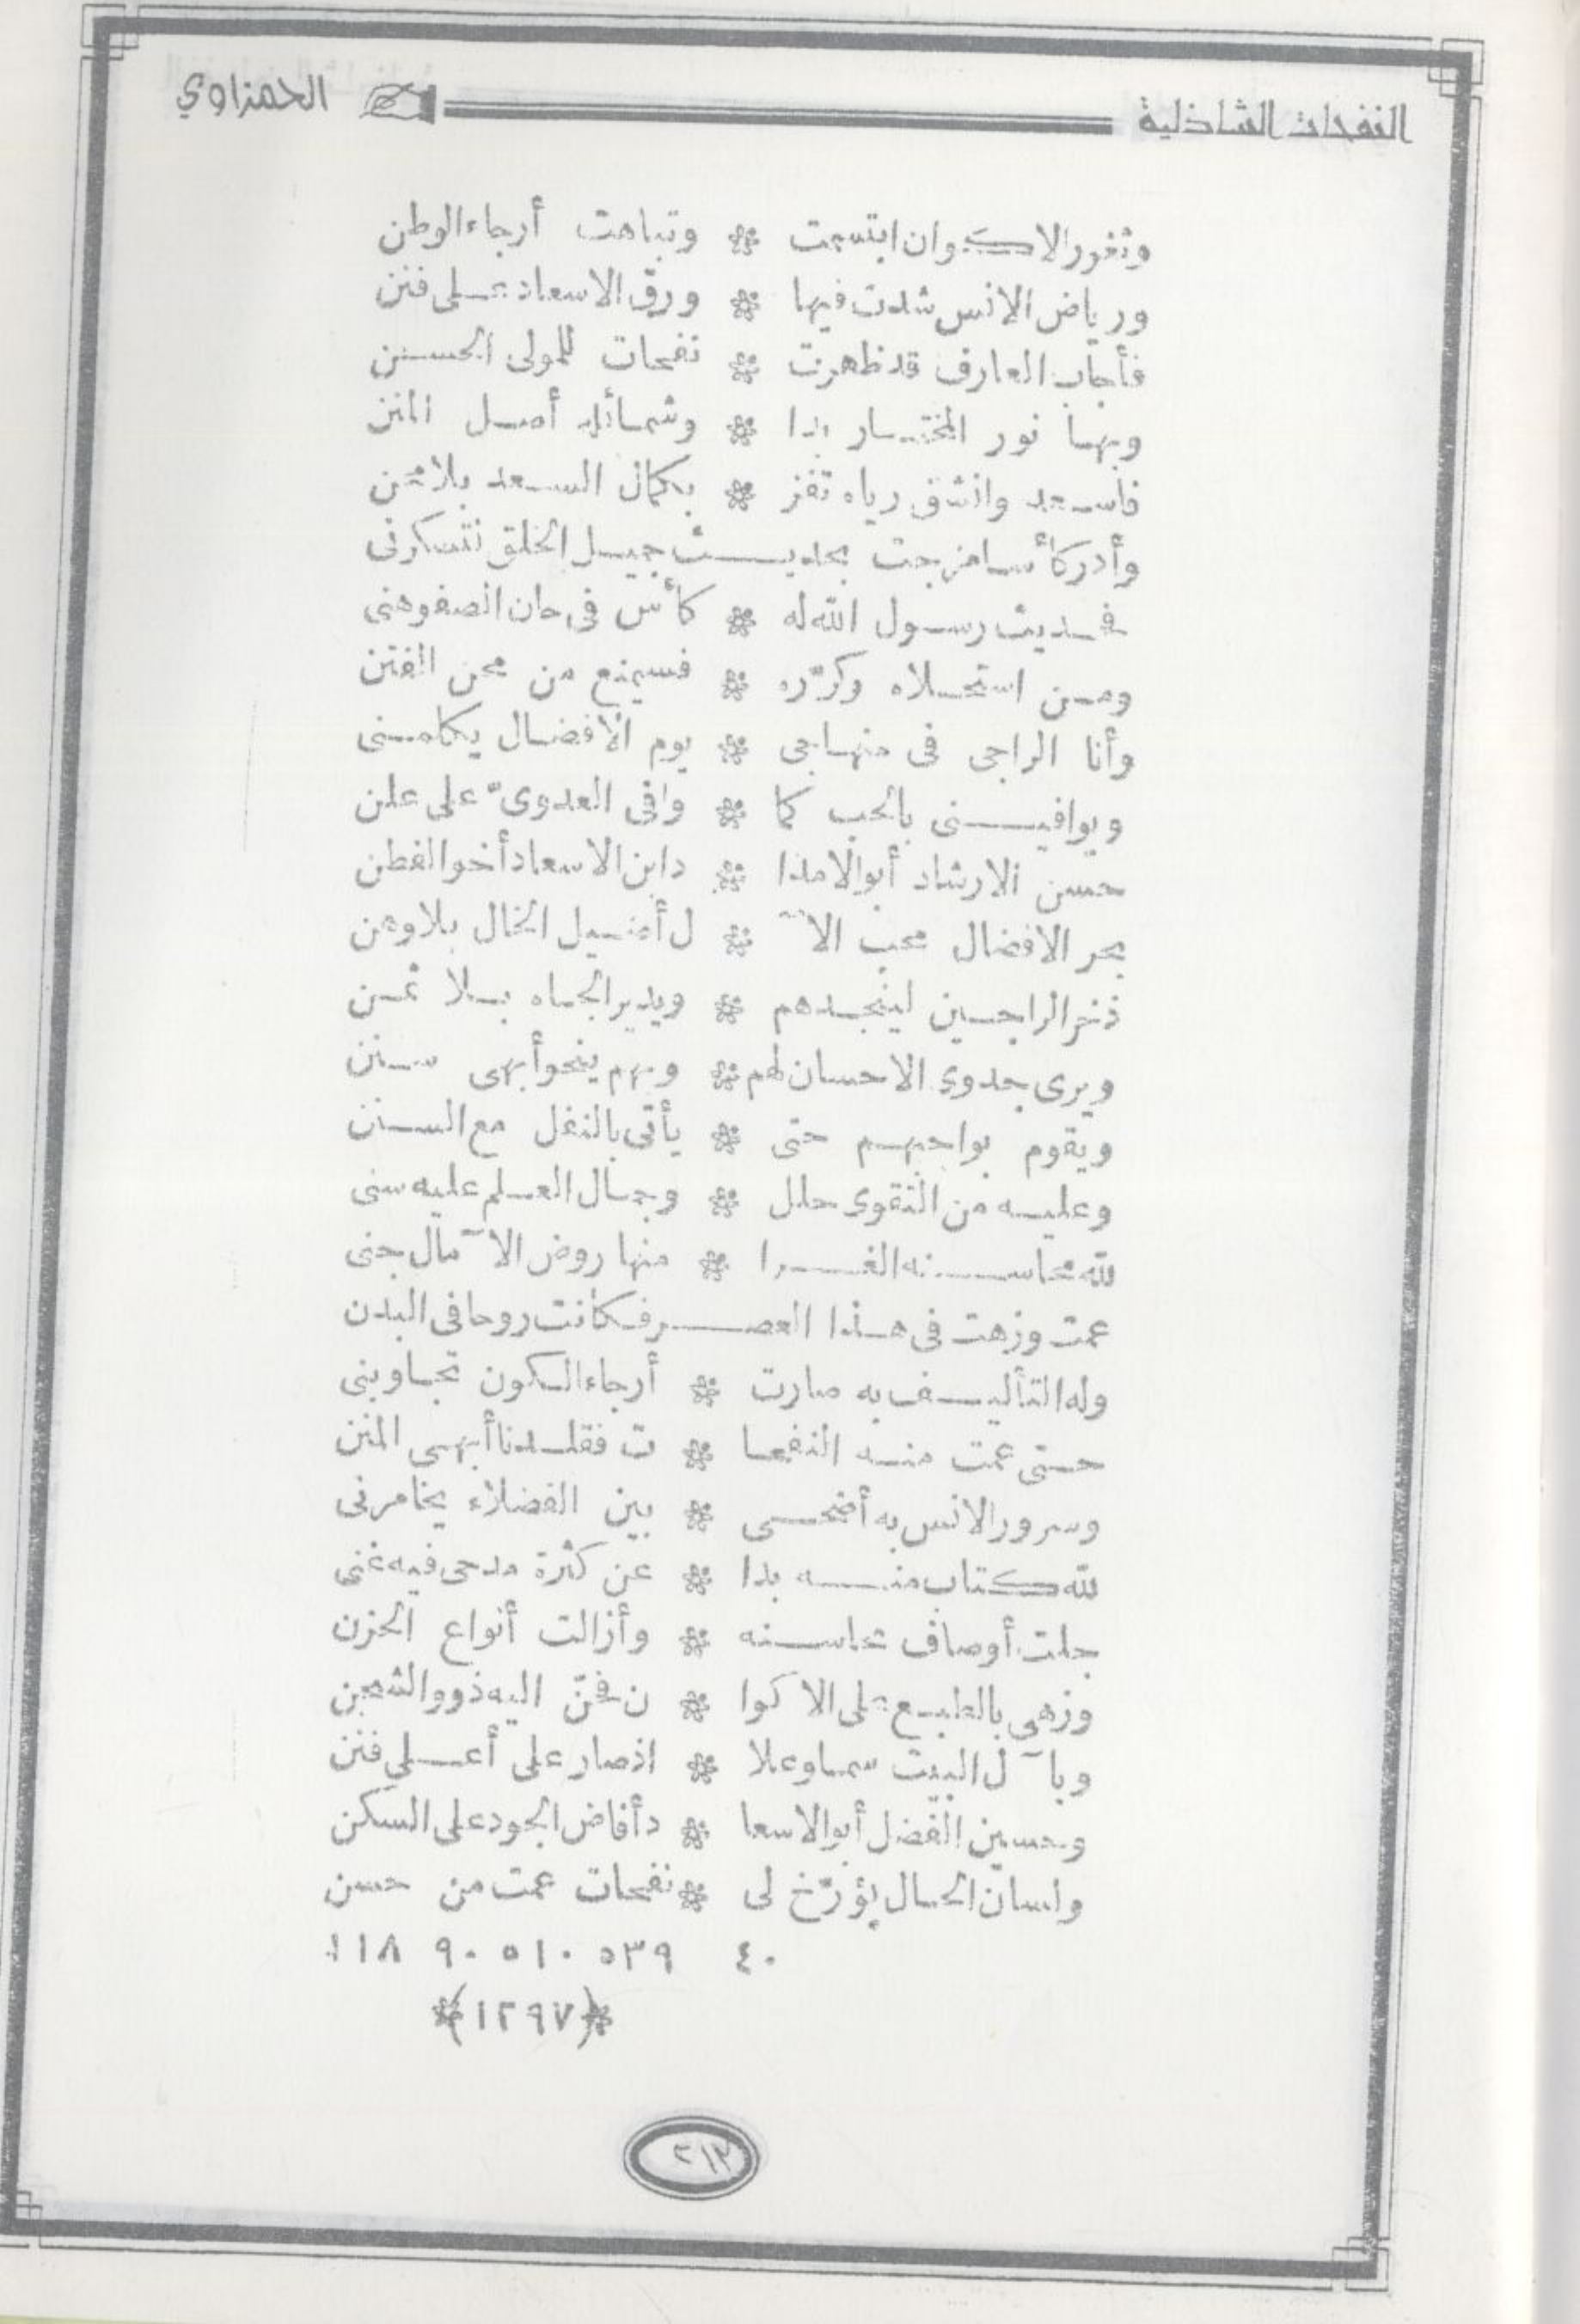 النفحات الشاذلية الحمزاوي
وثغور الاكوان ابتسمت * وتباهت أرجاء الوطن
ورياض الانس شدت فيها * ورق الاسعاد على فنن
فأجاب العارف قد ظهرت * نفحات للمولى الحسن
وبها نور المختار بدا * وشمائله أصل المنن
فاسعد وانشق رياه تفز * بكمال السعد بلا ثمن
وأدر كأسا مزجت بحديث جميل الخلق تشكرنى
فحديث رسول الله له * كأس فى حان الصفو هنى
ومن استحلاه وكرّره * فسيمنع من محن الفتن
وأنا الراجى فى منهاجى * يوم الافضال يكامنى
ويوافينى بالحب كما * وافى العدوىّ على علن
حسن الارشاد أبو الامدا * دابن الاسعاد أخو الفطن
بحر الافضال محب الا⁓ * ل أصيل الخال بلا وهن
ذخر الراجين لينجدهم * ويدير الجاه بلا ثمن
ويرى جدوى الاحسان لهم * وبهم ينحو أبهى سنن
ويقوم بواجبهم حتى * يأتى بالنفل مع السنن
وعليه من التقوى حلل * وجمال العلم عليه سنى
لله محاسنه الغرا * منها روض الآمال جنى
عمت وزهت فى هذا العصر فكانت روحا فى البدن
وله التأليف به صارت * أرجاء الكون تجاوبنى
حتى عمت منه النفحا * ت فقلدنا أبهى المنن
وسرور الانس به أضحى * بين الفضلاء يخامرنى
لله كتاب منه بدا * عن كثرة مدحى فيه غنى
جلت أوصاف محاسنه * وأزالت أنواع الحزن
وزهى بالطبع على الاكوا * ن فحنّ اليه ذوو الشجن
وبآل البيت سما وعلا * اذ صار على أعلى فنن
وحسين الفضل أبو الاسعا * د أفاض الجود على السكن
ولسان الحال يؤرّخ لى * نفحات عمت من حسن
٤٠ ٥٣٩ ٥١٠ ٩٠ ١١٨
*(١٢٩٧)*
٢١٣